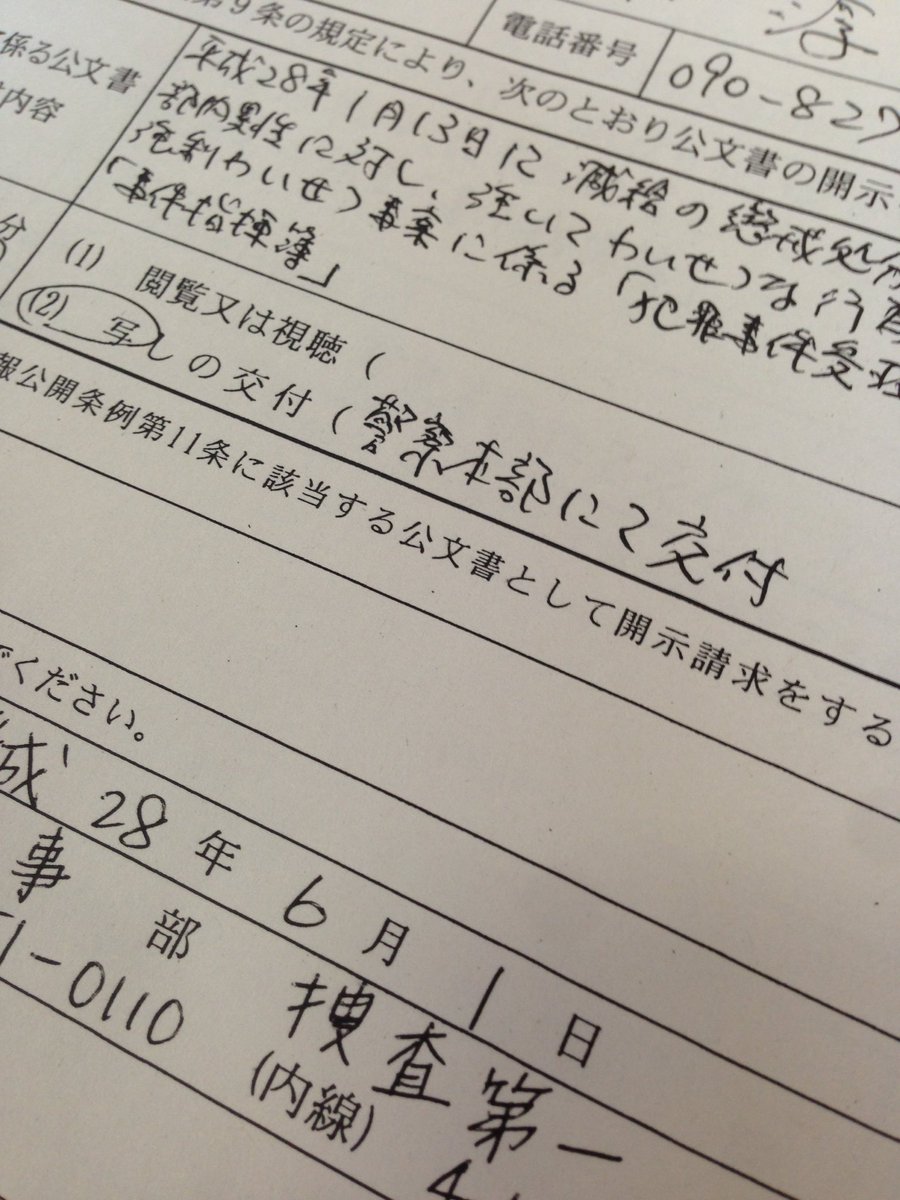 淳
電話番号 090-827
第9条の規定により、次のとおり公文書の開示
係る公文書
内容
平成28年1月13日に減給の懲戒処分
部内異性に対し、強いてわいせつな行為
強制わいせつ事案に係る「犯罪事件受理
「事件指揮簿」
分
(1) 閲覧又は視聴 (
(2) 写しの交付 (警察本部にて交付
報公開条例第11条に該当する公文書として開示請求をする
でください。
成 28 年 6 月 1 日
事 部 捜査第一
1-0110 (内線)